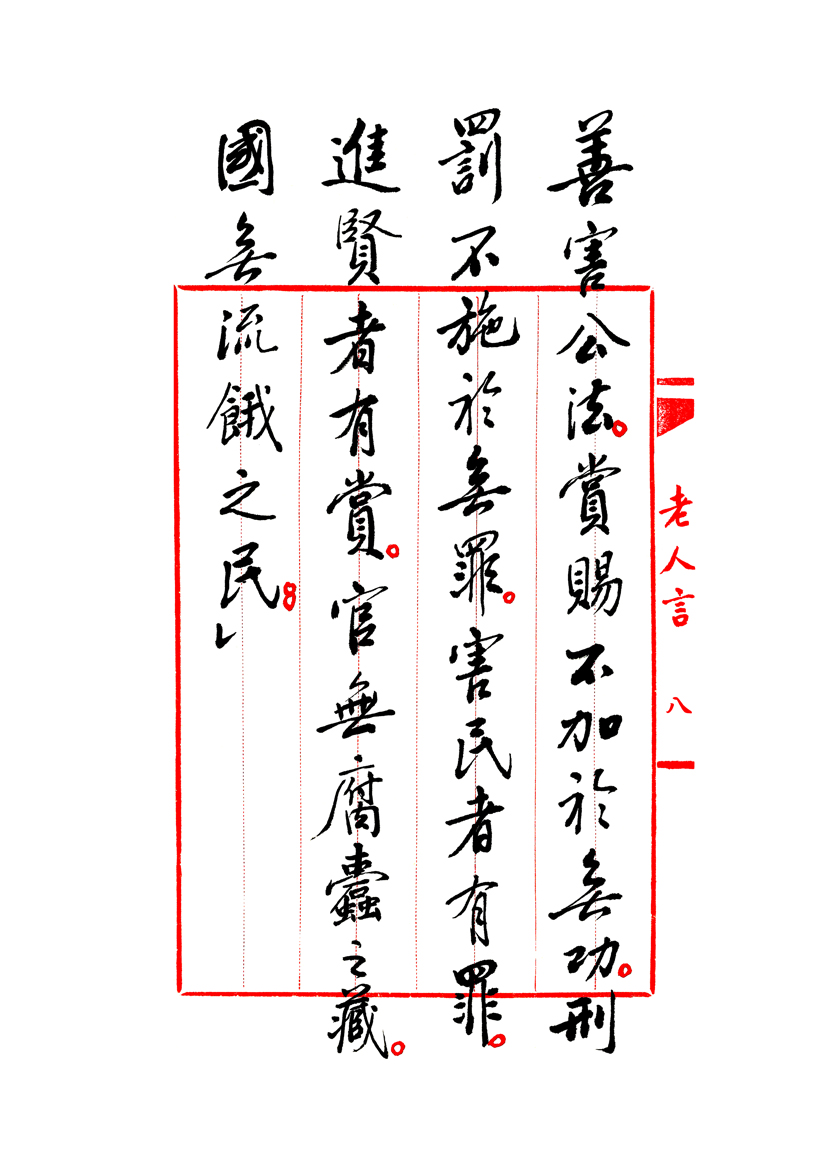 善害公法。賞賜不加於無功。刑
罰不施於無罪。害民者有罪。
進賢者有賞。官無腐蠹之藏。
國無流餓之民。」
老人言 八